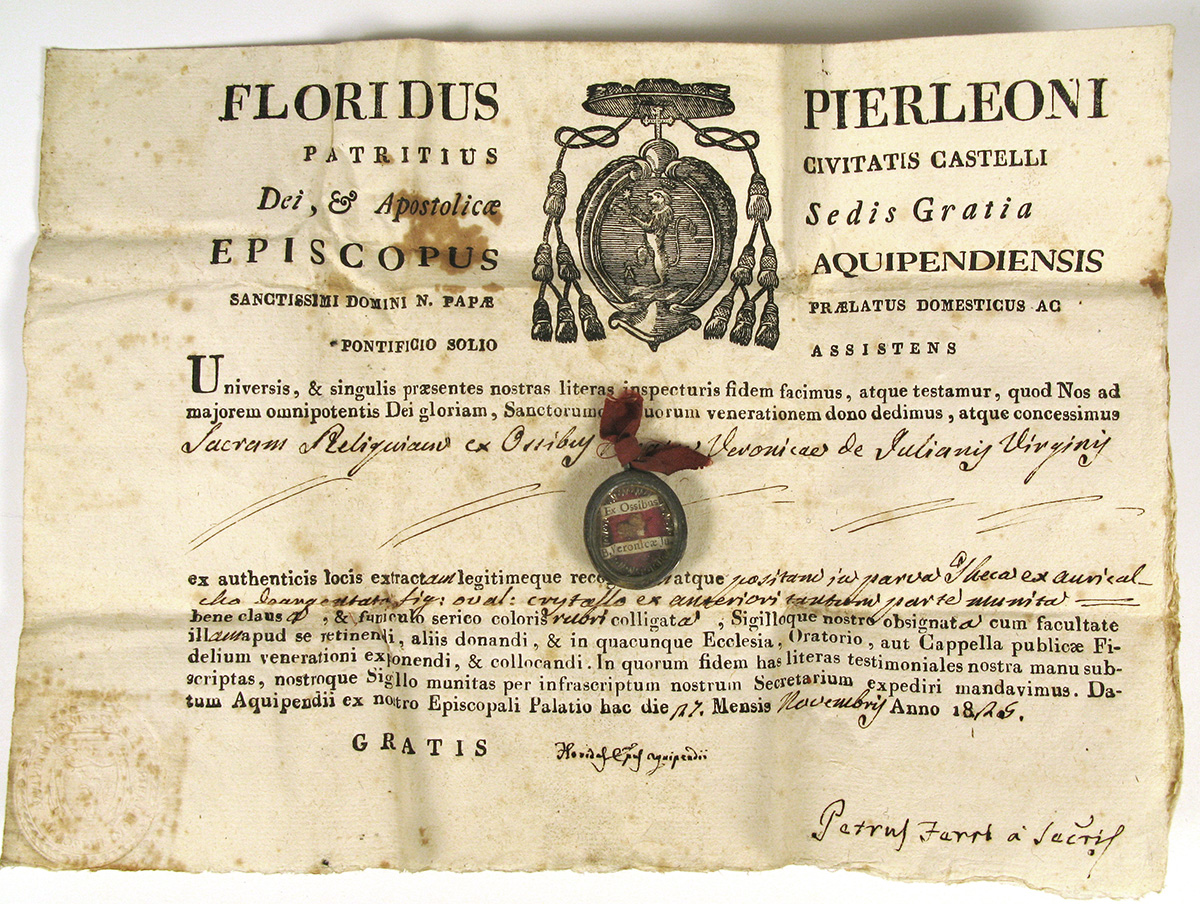 FLORIDUS PIERLEONI
PATRITIUS CIVITATIS CASTELLI
Dei, & Apostolicæ Sedis Gratia
EPISCOPUS AQUIPENDIENSIS
SANCTISSIMI DOMINI N. PAPÆ PRÆLATUS DOMESTICUS AC
PONTIFICIO SOLIO ASSISTENS
Universis, & singulis præsentes nostras literas inspecturis fidem facimus, atque testamur, quod Nos ad
majorem omnipotentis Dei gloriam, Sanctorum venerationem dono dedimus, atque concessimus
Sacram Reliquiam ex Ossibus Veronicae de Julianis Virginis
Ex Ossibus
B. Veronicæ Ju
ex authenticis locis extractam legitimeque atque positam in parva Theca ex aurical-
cho deargentato fig: oval: crystallo ex anteriori tantum parte munita
bene clausa, & funiculo serico coloris rubri colligata, Sigilloque nostro obsignata cum facultate
illam apud se retinendi, aliis donandi, & in quacunque Ecclesia, Oratorio, aut Cappella publicæ Fi-
delium venerationi exponendi, & collocandi. In quorum fidem has literas testimoniales nostra manu sub-
scriptas, nostroque Sigllo munitas per infrascriptum nostrum Secretarium expediri mandavimus. Da-
tum Aquipendii ex nostro Episcopali Palatio hac die 27. Mensis Novembris Anno 1825.
GRATIS Floridus Epus Aquipendii
Petrus Ferri a Secris